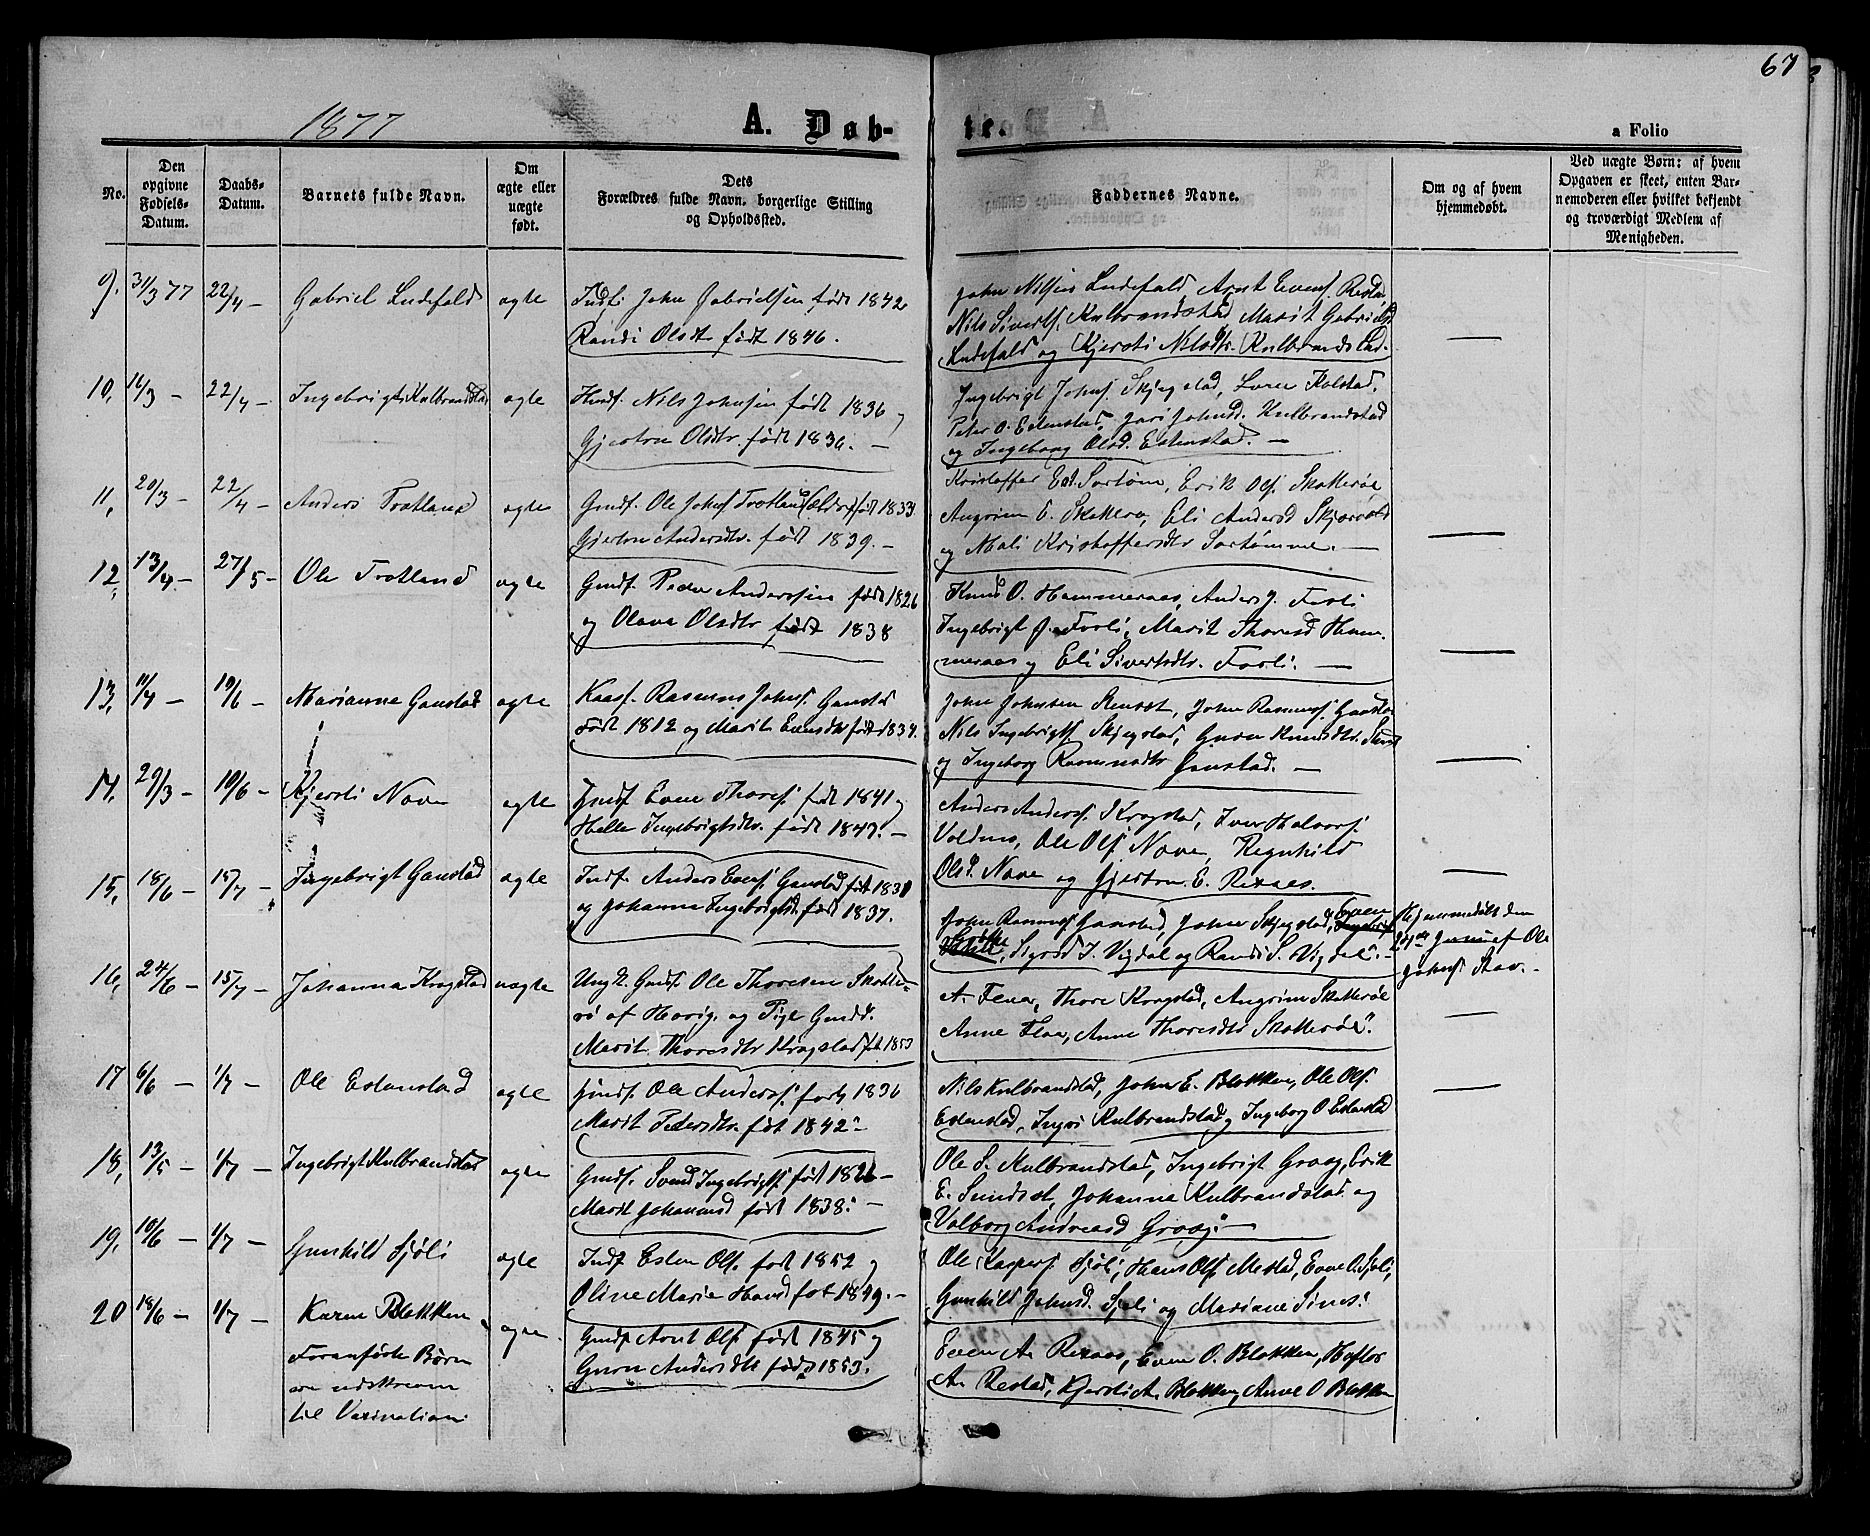 67
1877
A. Døb-
te.
a Folio
No.
Den
opgivne
Fødsels-
Datum.
Daabs-
Datum.
Barnets fulde Navn.
Om
ægte eller
uægte
født.
Dets
Forældres fulde Navn, borgerlige Stilling
og Opholdssted.
Faddernes Navne.
Om og af hvem
hjemmedøbt.
Ved uægte Børn: af hvem
Opgaven er skeet, enten Bar-
nemoderen eller hvilket bekjendt
og troværdigt Medlem af
Menigheden.
9. 31/3 77 22/4 — Gabriel Endefald ægte
Indst. John Gabrielsen født 1842
Randi Olsdt. født 1846.
John Nilsen Endefald Arnt Evens. Restad
Nils Siverts. Kulbrandstad Marit Gabrielsd
Endefald og Kjersti Nilsdtr. Kulbrandstad.
10, 16/3 — 22/4 — Ingebrigt Kulbrandstad ægte
Husf. Nils Johnsen født 1836 og
Gjertru Olsdtr. født 1836. —
Ingebrigt Johns. Skjegstad, Kolstad,
Peter O. Estenstad, Johnsd. Kulbrandstad
og Ingeborg Olsd. Estenstad. —
11, 20/3 — 22/4 — Anders Trotland ægte
Gmdf. Ole Johns. Trotland (Ældre) født 1833
Gjertru Andersdtr. født 1839. —
Kristoffer Sortøm, Erik Ols. Skatterøe
Angrim E. Skattero, Eli Andersd Skjærvold
og Mali Kristoffersdtr Sortømme. —
12, 13/4 — 27/5 — Ole Trotland ægte
Gmdf. Peder Anderssen født 1826
og Olava Olsdtr født 1838
Knud O. Hammeraas, Anders J. Foli
Ingebrigt J. Foli, Marit Thoresd Ham-
meraas og Eli Sivertsdtr. Foli. —
13, 11/4 — 10/6 — Marianne Ganstad ægte
Kaaf. Rasmus Johns. Ganstad
født 1812 og Marit Evensdtr født 1834.
John Johnsen Renset, John Rasmuss. Ganstad
Nils Ingebrigts. Skjegstad, Guru Knudsdtr.
og Ingeborg Rasmusdtr Ganstad. —
14, 29/3 — 10/6 — Kjersti Nove ægte
Gmdf. Even Thores. født 1841 og
Helle Ingebrigtsdtr. født 1847. —
Anders Anders. Krogstad, Iver Halvors.
Voldmo, Ole Ols. Nove, Regnhild
Olsd. Nove og Gjertru E. Rexaas.
15, 18/6 — 15/7 — Ingebrigt Ganstad ægte
Indf. Anders Evens. Ganstad født 1831
og Johanna Ingebrigtsd. født 1837.
John Rasmuss. Ganstad, John Skjegstad, Even
Sigrid J. Vigdal og Randi S. Vigdal. —
Hjemmedøbt den
24de Juni af Ole
Johns. Stav. —
16, 24/6 — 15/7 — Johanna Krogstad uægte
Ungk. Gmdf. Ole Thoresen Skatte-
rø af Horrig. og Pige Gmdd.
Marit Thoresdtr Krogstad født 1853
A. Fena, Thore Krogstad, Angrim Skatterøe
Anne Floa, Anne Thoresdtr Skatterøe.
17 6/6 — 1/7 — Ole Estenstad ægte
Gmdf. Ole Anders. født 1836
Marit Pedersdtr. føt 1842.
Nils Kulbrandstad, John E. Blokken, Ole Ols.
Estenstad, Ingri Kulbrandstad og Ingeborg O Estenstad
18, 13/5 — 1/7 — Ingebrigt Kulbrandstad ægte
Gmdf. Svend Ingebrigts. født 1826 —
Marit Johannesd født 1838. —
Ole S. Kulbrandstad, Ingebrigt Graag, Erik
E. Sundset, Johanna Kulbrandstad og
Valborg Andreasd Graag. —
19, 10/6 — 1/7 — Gunhild Sjøli ægte
Indf. Esten Ols. født 1852 og
Oline Marie Hansd føt 1849. —
Ole Kaspers. Sjøli, Hans Ols. Mestad, Even O. Sjøli,
Gunhild Johnsd. Sjøli og Mariane Simes.
20 18/6 — 1/7 — Karen Blokken, ægte.
Foranførte Børn
ere udskreven
til Vaxination.
Gmdf. Arnt Ols. født 1845 og
Guru Andersdtr født 1853.
Even A. Rexaas, Even O. Blokken, Hafter
A. Restad, Kjersti A. Blokken, Anne O Blokken